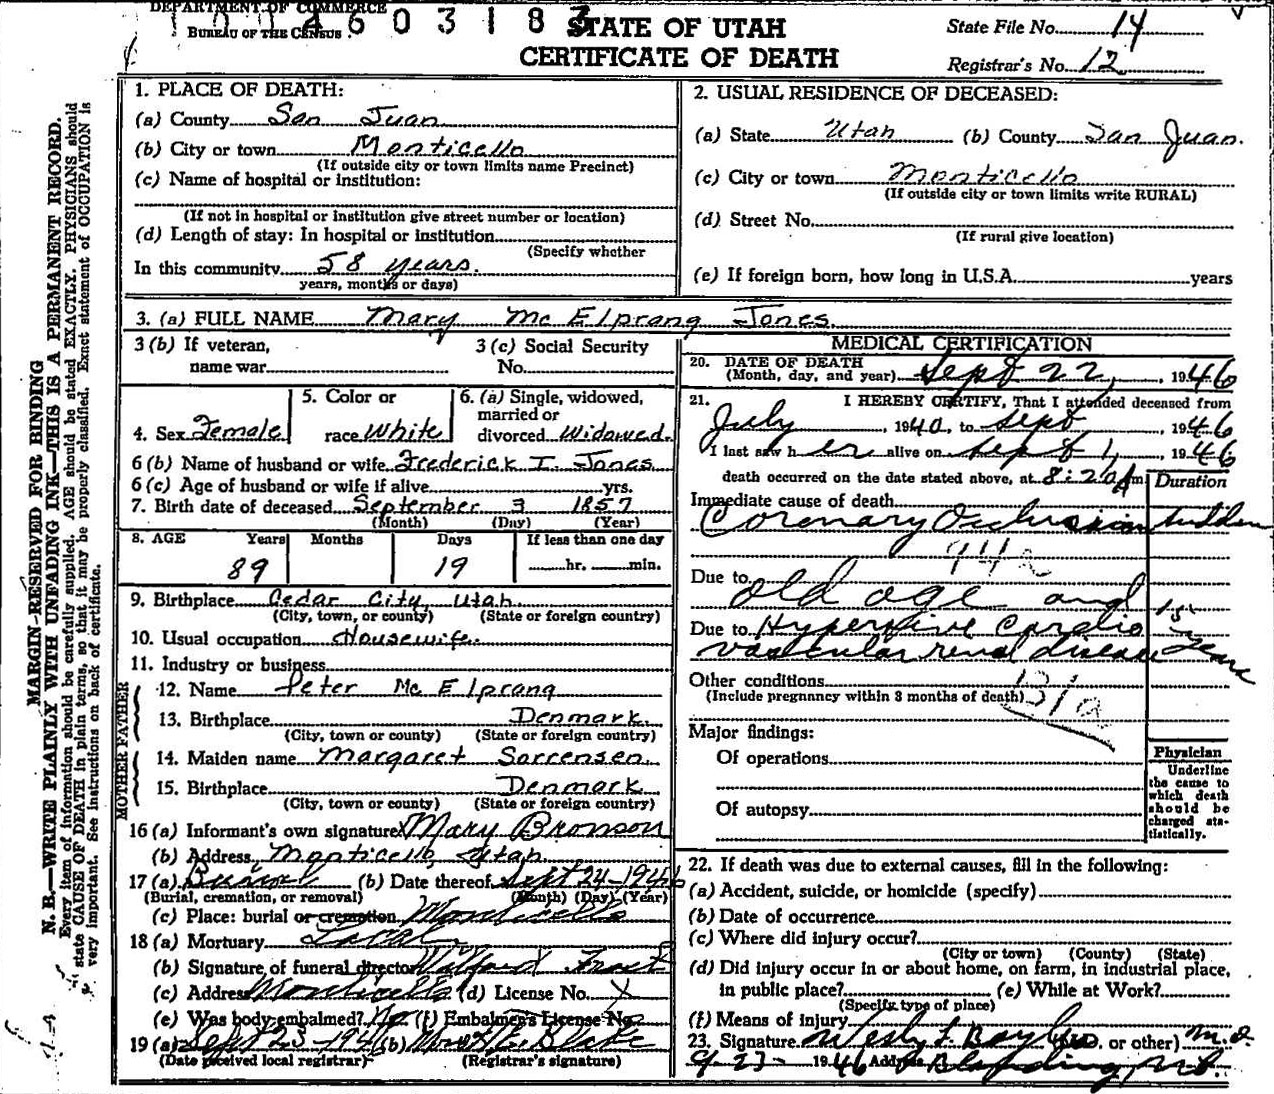 DEPARTMENT OF COMMERCE
BUREAU OF THE CENSUS
STATE OF UTAH
CERTIFICATE OF DEATH
State File No. 14
Registrar's No. 12
MARGIN-RESERVED FOR BINDING
N. B.—WRITE PLAINLY WITH UNFADING INK—THIS IS A PERMANENT RECORD.
Every item of information should be carefully supplied. AGE should be stated EXACTLY. PHYSICIANS should
state CAUSE OF DEATH in plain terms, so that it may be properly classified. Exact statement of OCCUPATION is
very important. See instructions on back of certificate.
1. PLACE OF DEATH:
(a) County San Juan
(b) City or town Monticello
(If outside city or town limits name Precinct)
(c) Name of hospital or institution:
(If not in hospital or institution give street number or location)
(d) Length of stay: In hospital or institution
(Specify whether
In this community 58 years.
years, months or days)
2. USUAL RESIDENCE OF DECEASED:
(a) State Utah (b) County San Juan.
(c) City or town Monticello
(If outside city or town limits write RURAL)
(d) Street No.
(If rural give location)
(e) If foreign born, how long in U.S.A. years
3. (a) FULL NAME Mary Mc Elprang Jones.
3 (b) If veteran, name war
3 (c) Social Security No.
4. Sex Female
5. Color or race White
6. (a) Single, widowed, married or divorced Widowed.
6 (b) Name of husband or wife Frederick I. Jones
6 (c) Age of husband or wife if alive yrs.
7. Birth date of deceased September 3 1857
(Month) (Day) (Year)
8. AGE Years Months Days If less than one day
89 19 hr. min.
9. Birthplace Cedar City, Utah
(City, town, or county) (State or foreign country)
10. Usual occupation Housewife.
11. Industry or business
FATHER
12. Name Peter Mc Elprang
13. Birthplace Denmark.
(City, town or county) (State or foreign country)
MOTHER
14. Maiden name Margaret Sorrensen.
15. Birthplace Denmark
(City, town or county) (State or foreign country)
16 (a) Informant's own signature X Mary Bronson
(b) Address Monticello, Utah
17 (a) Burial (b) Date thereof Sept 24-1946
(Burial, cremation, or removal) (Month) (Day) (Year)
(c) Place: burial or cremation Monticello
18 (a) Mortuary Local
(b) Signature of funeral director Wilford Frost
(c) Address Monticello (d) License No. X
(e) Was body embalmed? No (f) Embalmer's License No.
19 (a) Sept 23-1946 (b)
(Date received local registrar) (Registrar's signature)
MEDICAL CERTIFICATION
20. DATE OF DEATH
(Month, day, and year) Sept 22, 1946
21. I HEREBY CERTIFY, That I attended deceased from
July, 1940, to Sept, 1946
I last saw her alive on Sept 1, 1946
death occurred on the date stated above, at 8:20 A m.
Duration
Immediate cause of death
Coronary Occlusion sudden
94a
Due to old age and
Due to Hypertensive Cardio 15
vascular renal disease years
Other conditions
(Include pregnancy within 3 months of death)
131a
Major findings:
Of operations
Of autopsy
Physician
Underline the cause to which death should be charged statistically.
22. If death was due to external causes, fill in the following:
(a) Accident, suicide, or homicide (specify)
(b) Date of occurrence
(c) Where did injury occur?
(City or town) (County) (State)
(d) Did injury occur in or about home, on farm, in industrial place,
in public place? (e) While at Work?
(Specify type of place)
(f) Means of injury
23. Signature (M.D. or other) M.D.
9-23- 1946 Address Blanding, Ut.